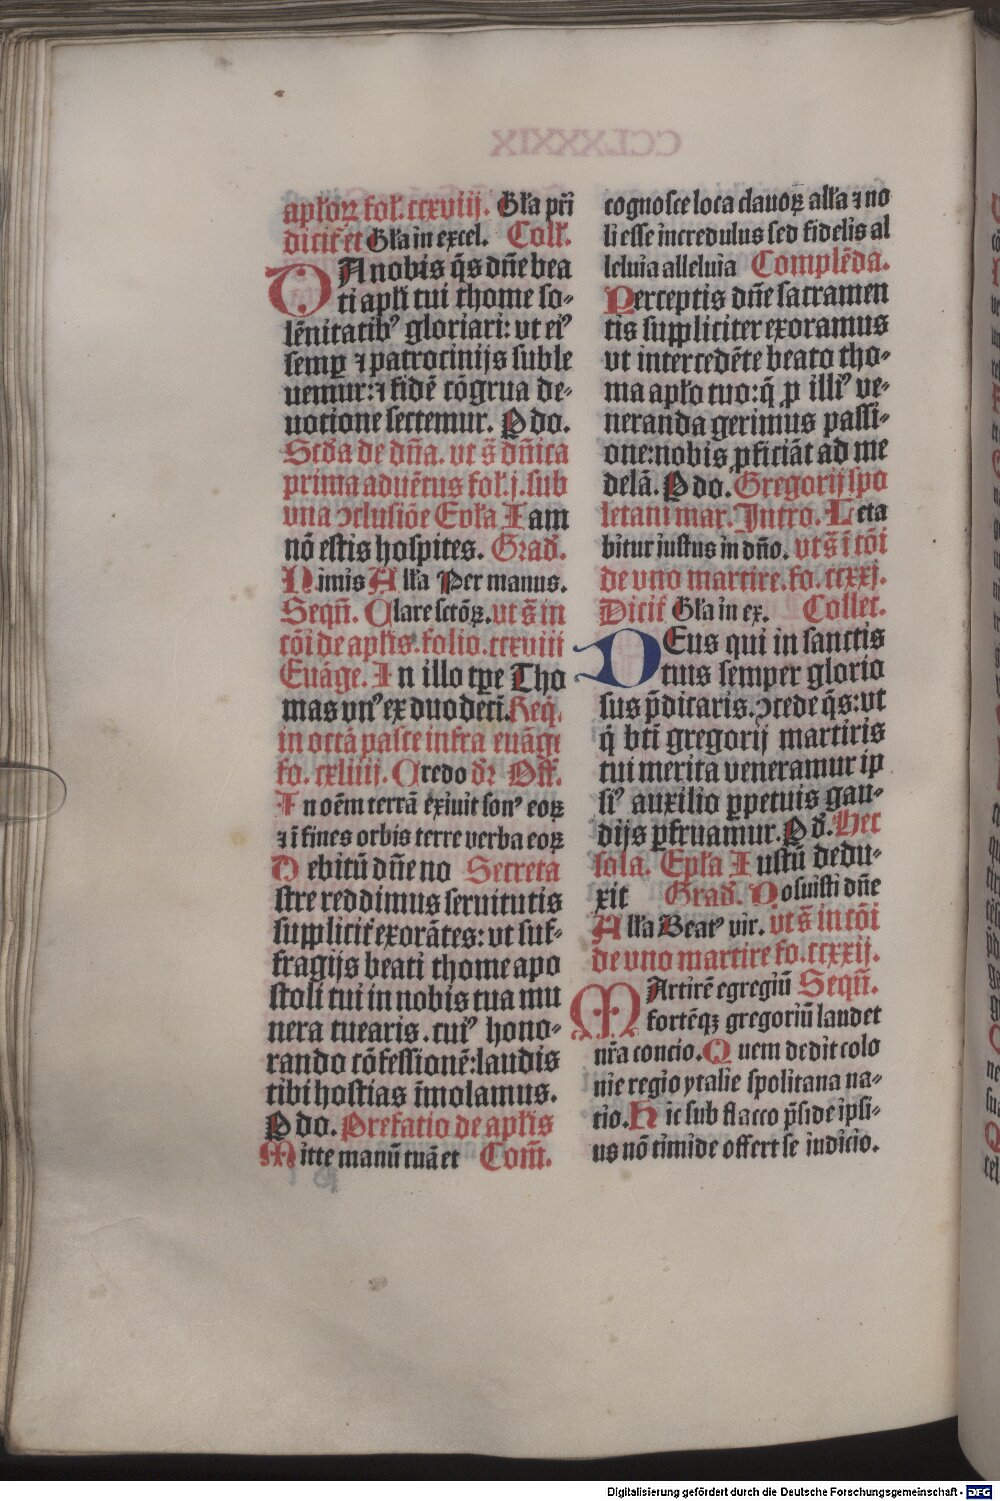 aplꝛoꝝ fol'. ccxviij. Gl'a pr̄i
dicit̄ et Gl'a in excel. Coll'.
DA nobis q̄s dn̄e bea
ti apl'i tui thome so⸗
lēnitatibꝰ gloriari: vt eiꝰ
semꝑ ⁊ patrocinijs suble
uemur: ⁊ fidē cōgrua de⸗
uotione sectemur. P do.
Scd'a de dn̄a. vt s̄ dn̄ica
prima aduētus fol'. j. sub
vna ↄclusiōe Epl'a Iam
nō estis hospites. Grad'.
Nimis All'a Per manus.
Seqn̄. Clare sctōꝝ. vt s̄ in
cōi de apl'is. folio. ccxviii
Euāge. In illo tp̄e Tho
mas vnꝰ ex duodeci̅. Req̄.
in octā pasce infra euāgī
fo. cxliiij. Credo dr̄ Off.
In oēm terrā exiuit sonꝰ eoꝝ
⁊ ī fines orbis terre verba eoꝝ
Debitū dn̄e no Secreta
stre reddimus seruitutis
suppliciť exorātes: vt suf⸗
fragijs beati thome apo
stoli tui in nobis tua mu
nera tuearis. cuiꝰ hono⸗
rando cōfessionē: laudis
tibi hostias īmolamus.
P do. Prefatio de apl'is
Mitte manū tuā et Com̄.
cognosce loca clauoꝝ all'a ⁊ no
li esse incredulus sed fidelis al
leluia alleluia Complēda.
Perceptis dn̄e sacramen
tis suppliciter exoramus
vt intercedēte beato tho⸗
ma apl'o tuo: q̄ ꝓ illiꝰ ve⸗
neranda gerimus passi⸗
one: nobis ꝓficiāt ad me
delā. P do. Gregorij spo
letani mar. Intro. Leta
bitur iustus in dn̄o. vt s̄ ī cōi
de vno martire. fo. ccxxj.
Dicit̄ Gl'a in ex. Collec.
DEus qui in sanctis
tuis semper glorio
sus p̄dicaris. ↄcede q̄s: vt
q̄ bti̅ gregorij martiris
tui merita veneramur ip
siꝰ auxilio ꝑpetuis gau⸗
dijs ꝑfruamur. P d'. Hec
sola. Epl'a Iustū dedu⸗
xit Grad'. Posuisti dn̄e
All'a Beatꝰ vir. vt s̄ in cōi
de vno martire fo. ccxxij.
MArtirē egregiū Seqn̄.
fortēqꝫ gregoriū laudet
nr̄a concio. Quem dedit colo
nie regio ytalie spolitana na⸗
tio. Hic sub flacco p̄side ipsi⸗
us nō timide offert se iudicio.
Digitalisierung gefördert durch die Deutsche Forschungsgemeinschaft - DFG